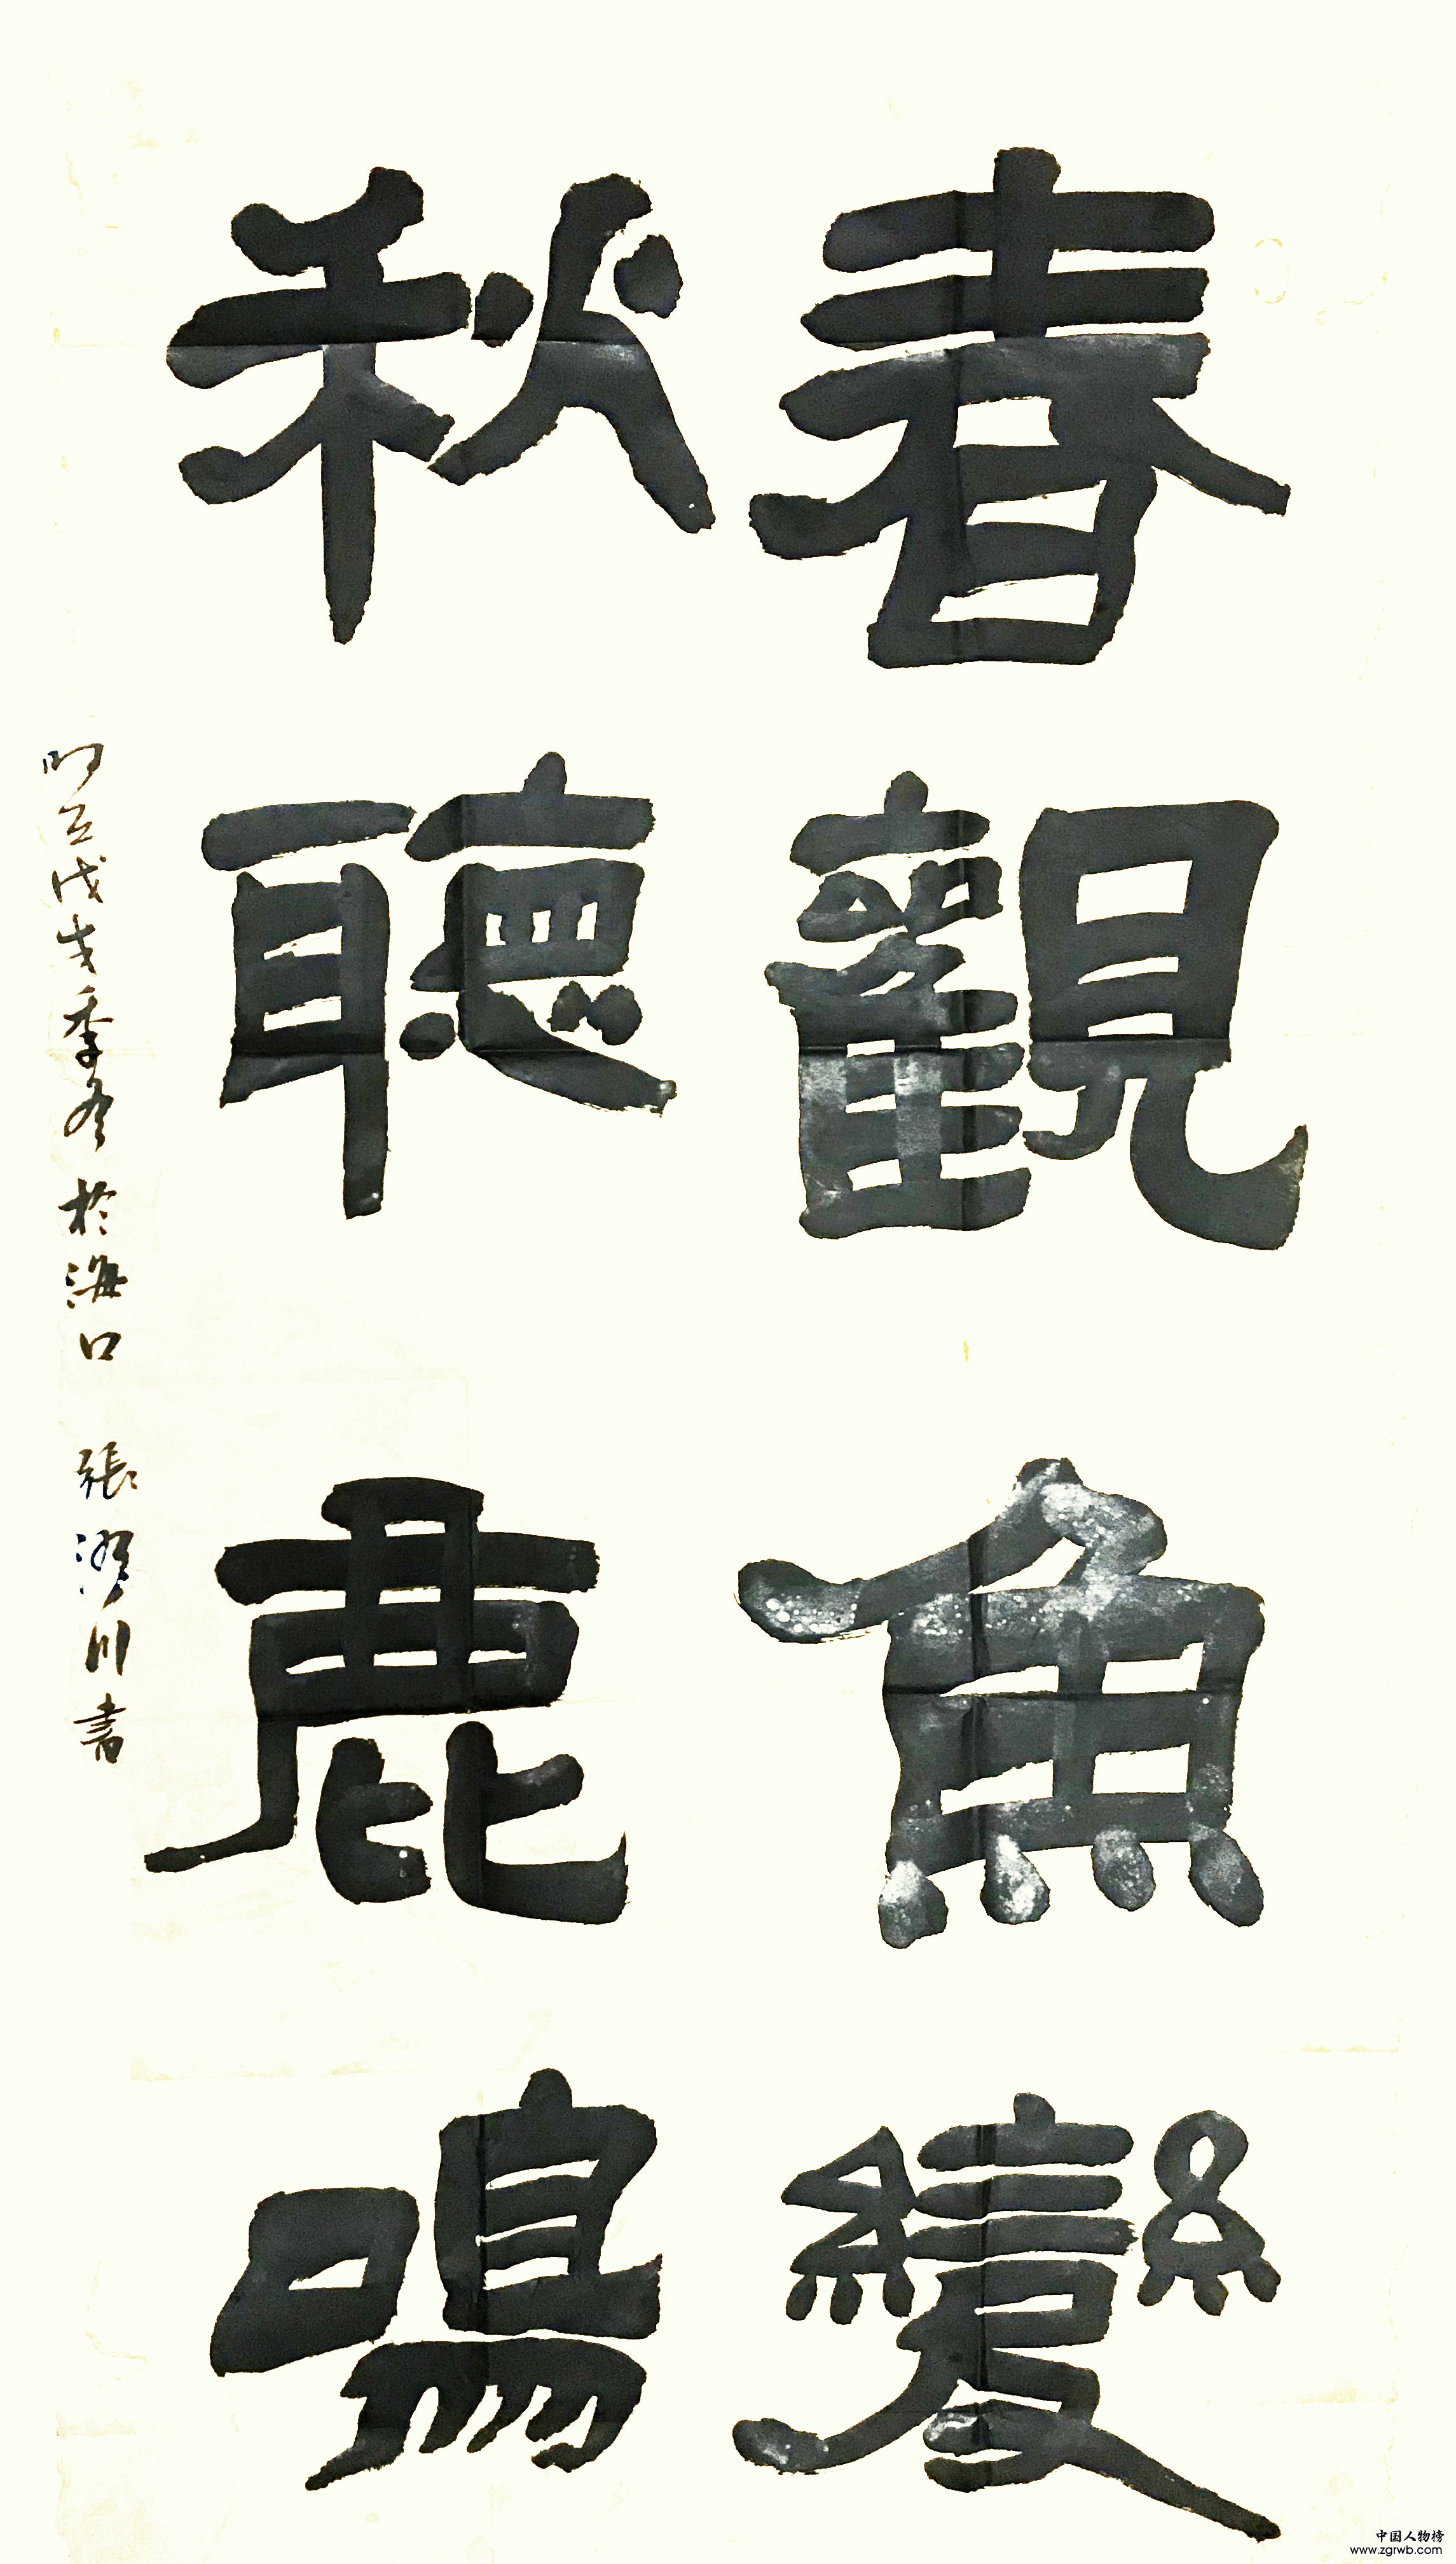 春觀魚變
秋聽鹿鳴
戊戌季冬於海口 張川書
中国人物榜
www.zgrwb.com